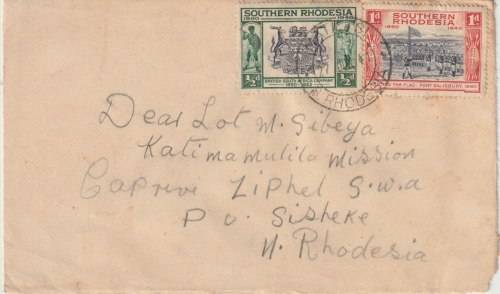 SOUTHERN RHODESIA
1890 1940
½d ½d
BRITISH SOUTH AFRICA COMPANY
1890-1923
SOUTHERN
RHODESIA
1d 1d
1890 1940
FORT SALISBURY, 1890
RHODESIA
Dear Lot M. Sibeya
Katimamulilo Mission
Caprivi Ziphel S.W.A
P O. Sisheke
N. Rhodesia